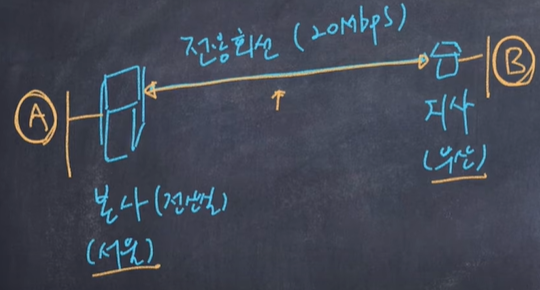 전용회선 (20Mbps)
A
B
본사 (전산실)
(서울)
지사
(부산)